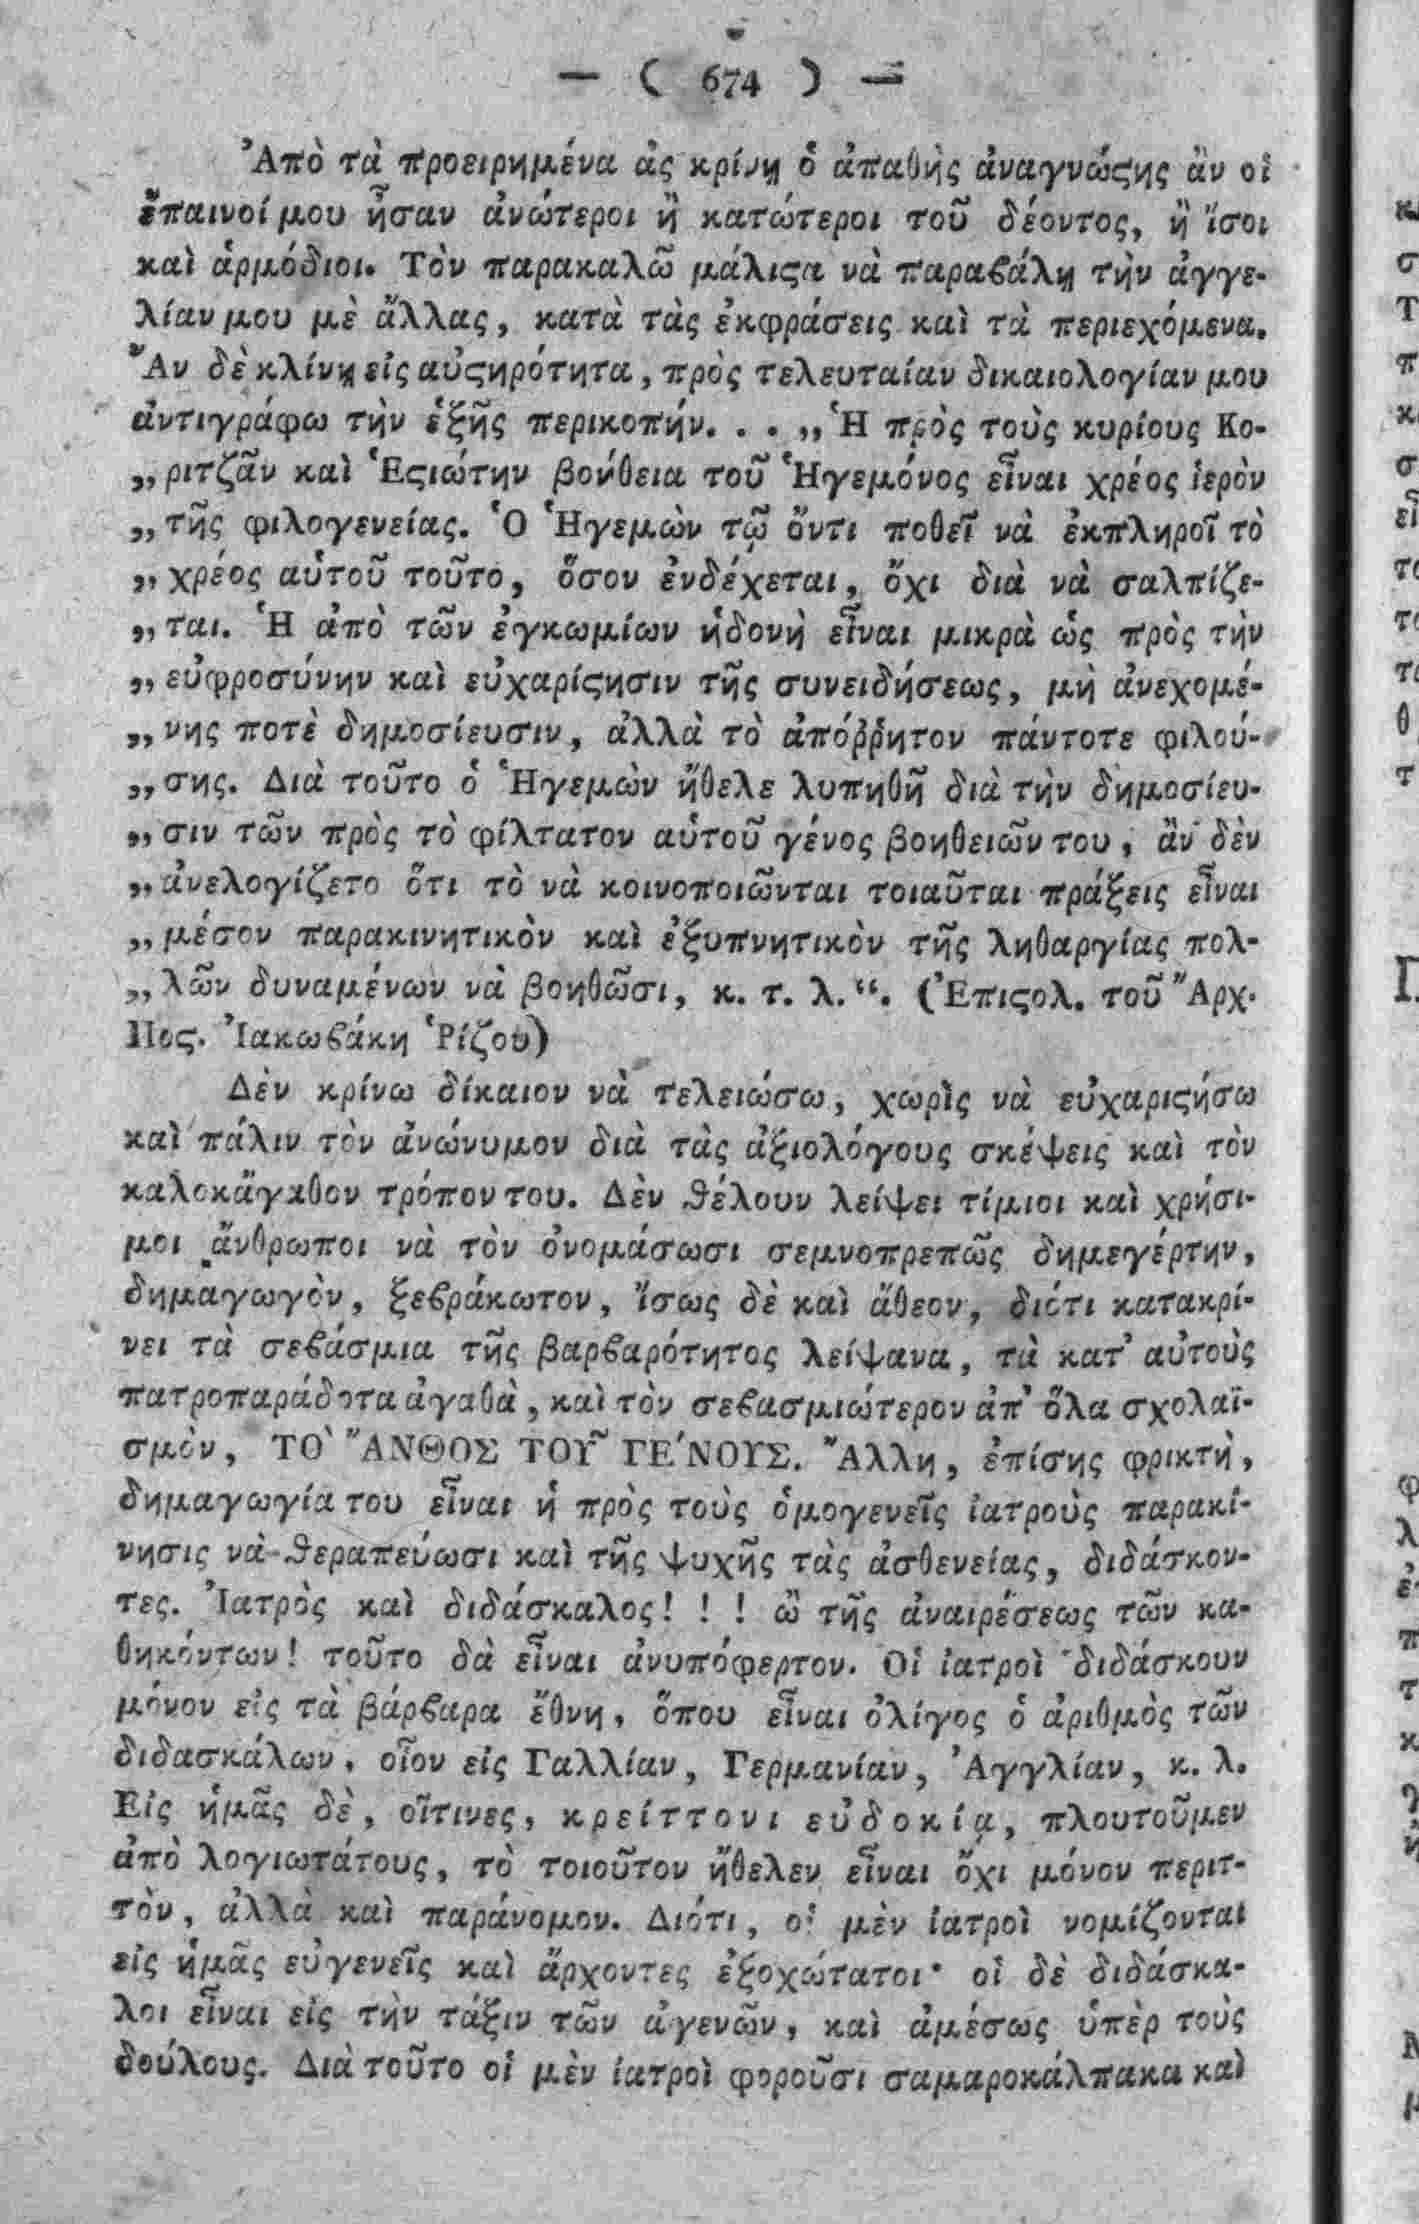 — ( 674 ) —
Ἀπὸ τὰ προειρημένα ἀς κρίνῃ ὁ ἀπαθὴς ἀναγνώϛης ἂν οἱ
ἔπαινοί μου ἦσαν ἀνώτεροι ἢ κατώτεροι τοῦ δέοντος, ἢ ἴσοι
καὶ ἁρμόδιοι. Τὸν παρακαλῶ μάλιϛα νὰ παραϐάλῃ τὴν ἀγγε-
λίαν μου μὲ ἄλλας, κατὰ τὰς ἐκφράσεις καὶ τὰ περιεχόμενα.
Ἂν δὲ κλίνῃ εἰς αὐϛηρότητα, πρὸς τελευταίαν δικαιολογίαν μου
ἀντιγράφω τὴν ἑξῆς περικοπήν. . . „Ἡ πρὸς τοὺς κυρίους Κο-
„ριτζᾶν καὶ Ἑϛιώτην βοήθεια τοῦ Ἡγεμόνος εἶναι χρέος ἱερὸν
„τῆς φιλογενείας. Ὁ Ἡγεμὼν τῷ ὄντι ποθεῖ νὰ ἐκπληροῖ τὸ
„χρέος αὑτοῦ τοῦτο, ὅσον ἐνδέχεται, ὄχι διὰ νὰ σαλπίζε-
„ται. Ἡ ἀπὸ τῶν ἐγκωμίων ἡδονὴ εἶναι μικρὰ ὡς πρὸς τὴν
„εὐφροσύνην καὶ εὐχαρίϛησιν τῆς συνειδήσεως, μὴ ἀνεχομέ-
„νης ποτὲ δημοσίευσιν, ἀλλὰ τὸ ἀπόῤῥητον πάντοτε φιλού-
„σης. Διὰ τοῦτο ὁ Ἡγεμὼν ἤθελε λυπηθῆ διὰ τὴν δημοσίευ-
„σιν τῶν πρὸς τὸ φίλτατον αὑτοῦ γένος βοηθειῶν του, ἂν δὲν
„ἀνελογίζετο ὅτι τὸ νὰ κοινοποιῶνται τοιαῦται πράξεις εἶναι
„μέσον παρακινητικὸν καὶ ἐξυπνητικὸν τῆς ληθαργίας πολ-
„λῶν δυναμένων νὰ βοηθῶσι, κ. τ. λ.“. (Ἐπιϛολ. τοῦ Ἄρχ.
Ποϛ. Ἰακωϐάκη Ῥίζου)
Δὲν κρίνω δίκαιον νὰ τελειώσω, χωρὶς νὰ εὐχαριϛήσω
καὶ πάλιν τὸν ἀνώνυμον διὰ τὰς ἀξιολόγους σκέψεις καὶ τὸν
καλοκἄγαθον τρόπον του. Δὲν θέλουν λείψει τίμιοι καὶ χρήσι-
μοι ἄνθρωποι νὰ τὸν ὀνομάσωσι σεμνοπρεπῶς δημεγέρτην,
δημαγωγὸν, ξεϐράκωτον, ἴσως δὲ καὶ ἄθεον, διότι κατακρί-
νει τὰ σεϐάσμια τῆς βαρϐαρότητος λείψανα, τὰ κατ᾽ αὐτοὺς
πατροπαράδοτα ἀγαθὰ, καὶ τὸν σεϐασμιώτερον ἀπ᾽ ὅλα σχολαϊ-
σμὸν, ΤΟ` ἌΝΘΟΣ ΤΟΥ͂ ΓΕ´ΝΟΥΣ. Ἄλλη, ἐπίσης φρικτὴ,
δημαγωγία του εἶναι ἡ πρὸς τοὺς ὁμογενεῖς ἰατροὺς παρακί-
νησις νὰ θεραπεύωσι καὶ τῆς ψυχῆς τὰς ἀσθενείας, διδάσκον-
τες. Ἰατρὸς καὶ διδάσκαλος! ! ! ὢ τῆς ἀναιρέσεως τῶν κα-
θηκόντων! τοῦτο δὰ εἶναι ἀνυπόφερτον. Οἱ ἰατροὶ διδάσκουν
μόνον εἰς τὰ βάρϐαρα ἔθνη, ὅπου εἶναι ὀλίγος ὁ ἀριθμὸς τῶν
διδασκάλων, οἷον εἰς Γαλλίαν, Γερμανίαν, Ἀγγλίαν, κ. λ.
Εἰς ἡμᾶς δὲ, οἵτινες, κρείττονι εὐδοκίᾳ, πλουτοῦμεν
ἀπὸ λογιωτάτους, τὸ τοιοῦτον ἤθελεν εἶναι ὄχι μόνον περιτ-
τὸν, ἀλλὰ καὶ παράνομον. Διότι, οἱ μὲν ἰατροὶ νομίζονται
εἰς ἡμᾶς εὐγενεῖς καὶ ἄρχοντες ἐξοχώτατοι· οἱ δὲ διδάσκα-
λοι εἶναι εἰς τὴν τάξιν τῶν ἀγενῶν, καὶ ἀμέσως ὑπὲρ τοὺς
δούλους. Διὰ τοῦτο οἱ μὲν ἰατροὶ φοροῦσι σαμαροκάλπακα καὶ